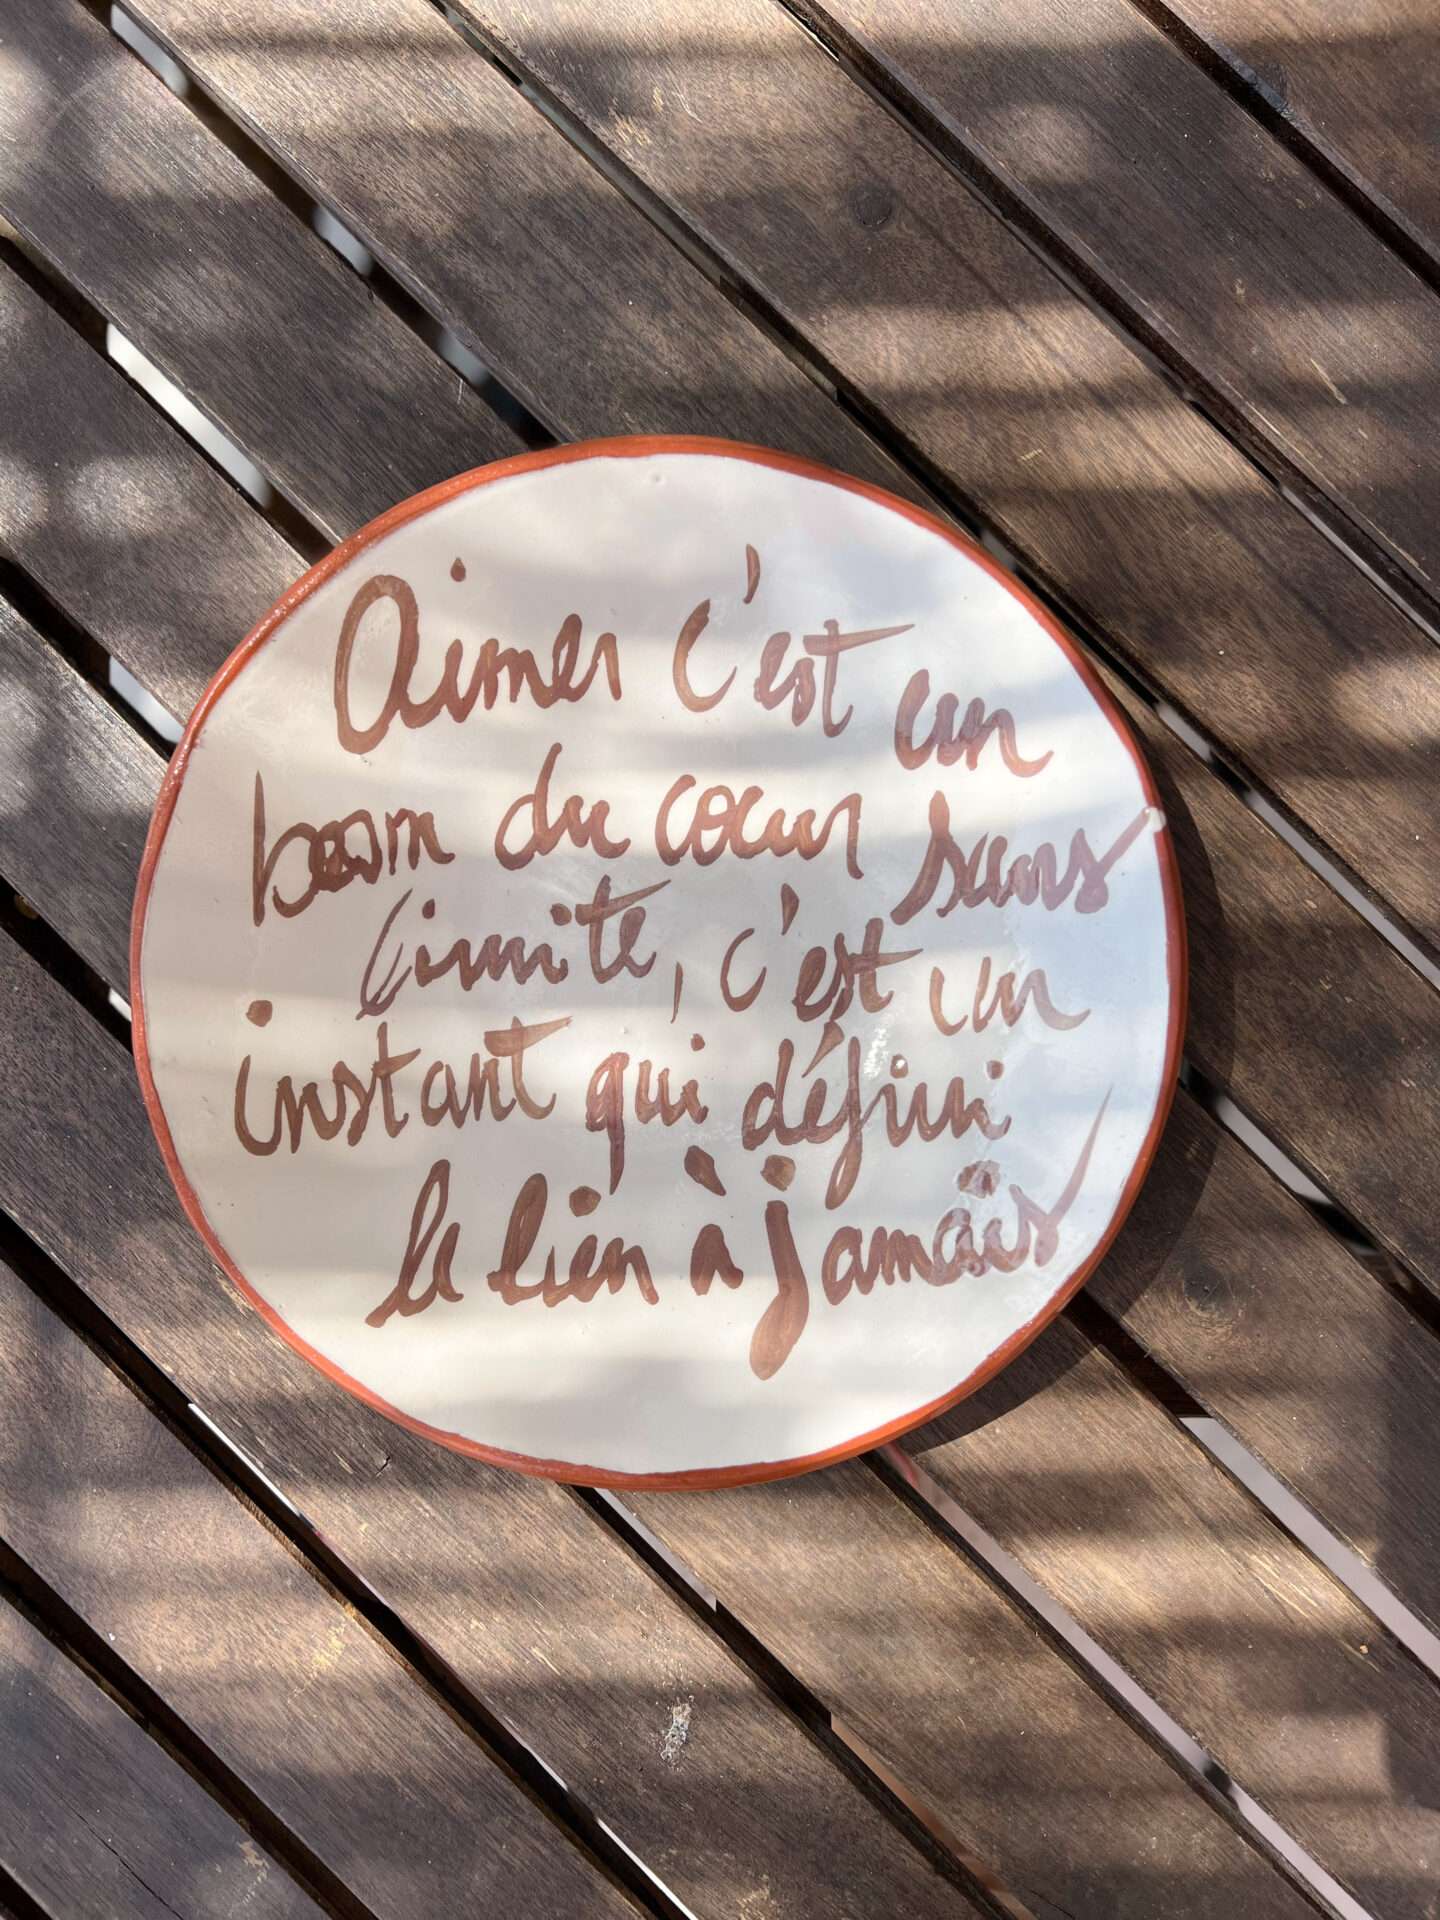 Aimer c'est un
boom du cœur sans
limite, c'est un
instant qui défini
le lien à jamais